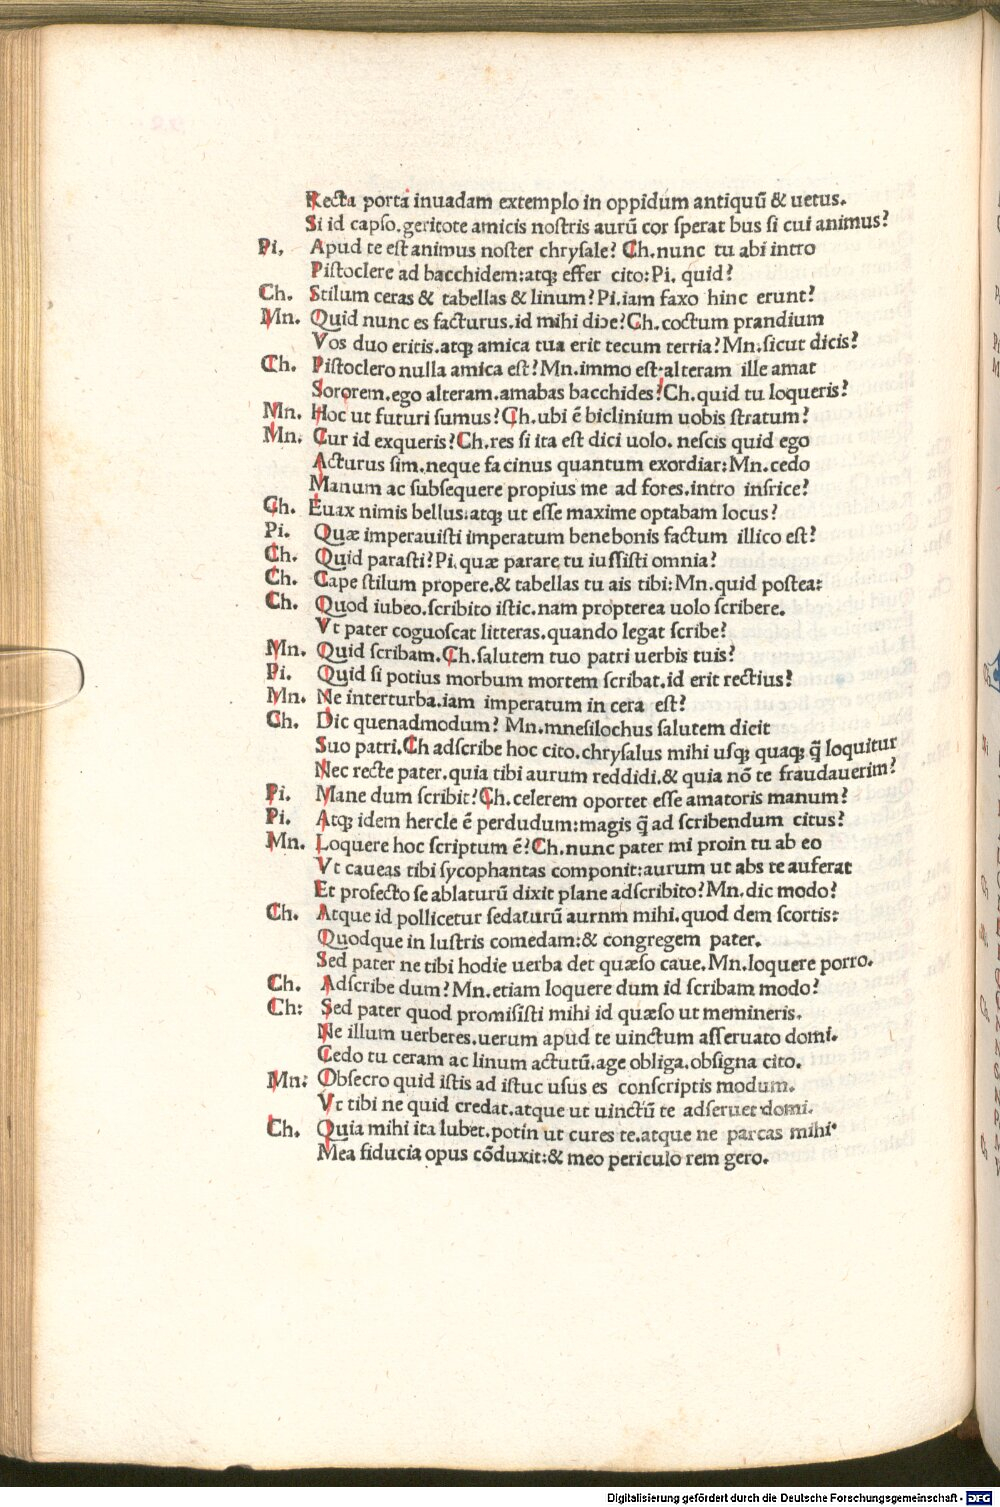 Recta porta inuadam extemplo in oppidum antiquū & uetus.
Si id capso.geritote amicis nostris aurū cor sperat bus si cui animus?
Pi. Apud te est animus noster chrysale? Ch.nunc tu abi intro
Pistoclere ad bacchidem:atqꝫ effer cito:Pi. quid?
Ch. Stilum ceras & tabellas & linum?Pi.iam faxo hinc erunt?
Mn. Quid nunc es facturus.id mihi dice?Ch.coctum prandium
Vos duo eritis.atqꝫ amica tua erit tecum tertia?Mn.sicut dicis?
Ch. Pistoclero nulla amica est?Mn.immo est.alteram ille amat
Sororem.ego alteram.amabas bacchides?Ch.quid tu loqueris?
Mn. Hoc ut futuri sumus?Ch.ubi ē biclinium uobis stratum?
Mn. Cur id exqueris?Ch.res si ita est dici uolo. nescis quid ego
Acturus sim.neque facinus quantum exordiar:Mn.cedo
Manum ac subsequere propius me ad fores.intro insrice?
Ch. Euax nimis bellus:atqꝫ ut esse maxime optabam locus?
Pi. Quæ imperauisti imperatum benebonis factum illico est?
Ch. Quid parasti?Pi.quæ parare tu iussisti omnia?
Ch. Cape stilum propere.& tabellas tu ais tibi:Mn.quid postea:
Ch. Quod iubeo.scribito istic.nam propterea uolo scribere.
Vt pater coguoscat litteras.quando legat scribe?
Mn. Quid scribam.Ch.salutem tuo patri uerbis tuis?
Pi. Quid si potius morbum mortem scribat.id erit rectius?
Mn. Ne interturba.iam imperatum in cera est?
Ch. Dic quenadmodum? Mn.mnesilochus salutem dicit
Suo patri.Ch adscribe hoc cito.chrysalus mihi usqꝫ quaqꝫ q̄ loquitur
Nec recte pater.quia tibi aurum reddidi.& quia nō te fraudauerim?
Pi. Mane dum scribit?Ch.celerem oportet esse amatoris manum?
Pi. Atqꝫ idem hercle ē perdudum:magis q̄ ad scribendum citus?
Mn. Loquere hoc scriptum ē?Ch.nunc pater mi proin tu ab eo
Vt caueas tibi sycophantas componit:aurum ut abs te auferat
Et profecto se ablaturū dixit plane adscribito?Mn.dic modo?
Ch. Atque id pollicetur sedaturū aurnm mihi.quod dem scortis:
Quodque in lustris comedam:& congregem pater.
Sed pater ne tibi hodie uerba det quæso caue.Mn.loquere porro.
Ch. Adscribe dum?Mn.etiam loquere dum id scribam modo?
Ch: Sed pater quod promisisti mihi id quæso ut memineris.
Ne illum uerberes.uerum apud te uinctum asseruato domi.
Cedo tu ceram ac linum actutū.age obliga.obsigna cito.
Mn: Obsecro quid istis ad istuc usus es conscriptis modum.
Vt tibi ne quid credat.atque ut uinctū te adseruet domi.
Ch. Quia mihi ita lubet.potin ut cures te.atque ne parcas mihi
Mea fiducia opus cōduxit:& meo periculo rem gero.
Digitalisierung gefördert durch die Deutsche Forschungsgemeinschaft - DFG